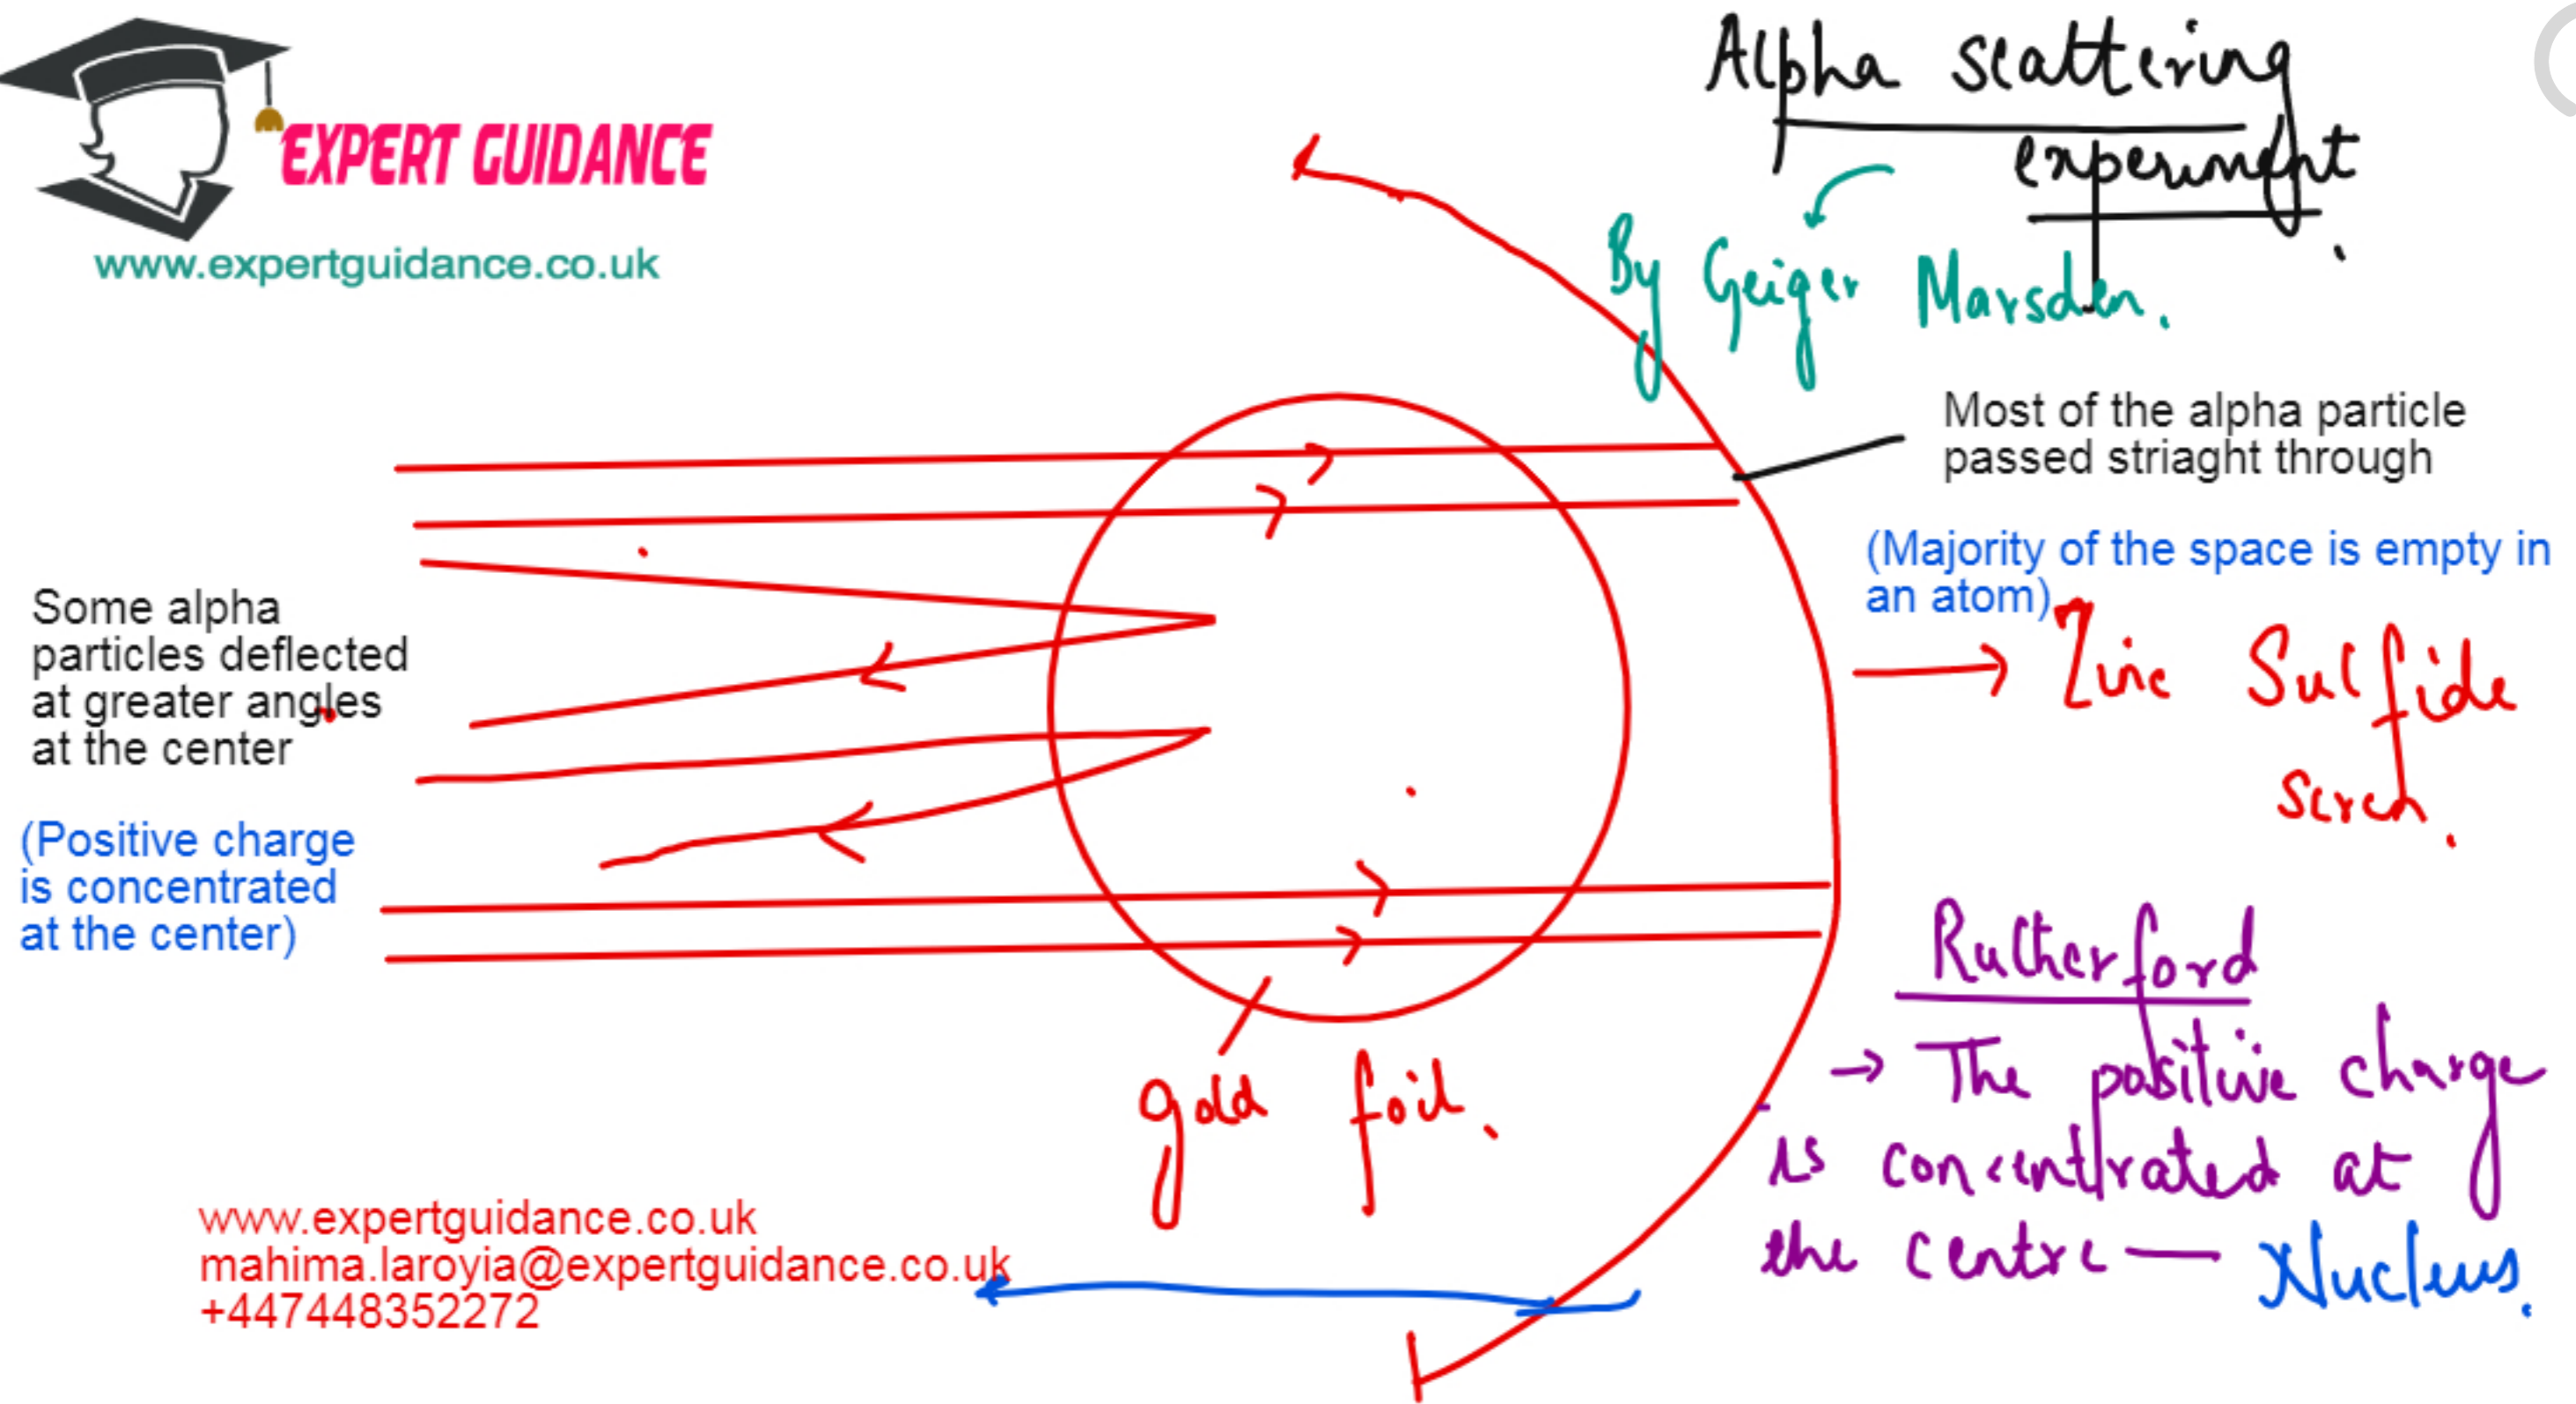 EXPERT GUIDANCE
www.expertguidance.co.uk
Alpha scattering
experiment.
By Geiger Marsden.
Most of the alpha particle
passed striaght through
(Majority of the space is empty in
an atom)
Zinc Sulfide
scren.
Some alpha
particles deflected
at greater angles
at the center
(Positive charge
is concentrated
at the center)
gold foil.
Rutherford
→ The positive charge
is concentrated at
the centre — Nucleus.
www.expertguidance.co.uk
mahima.laroyia@expertguidance.co.uk
+447448352272